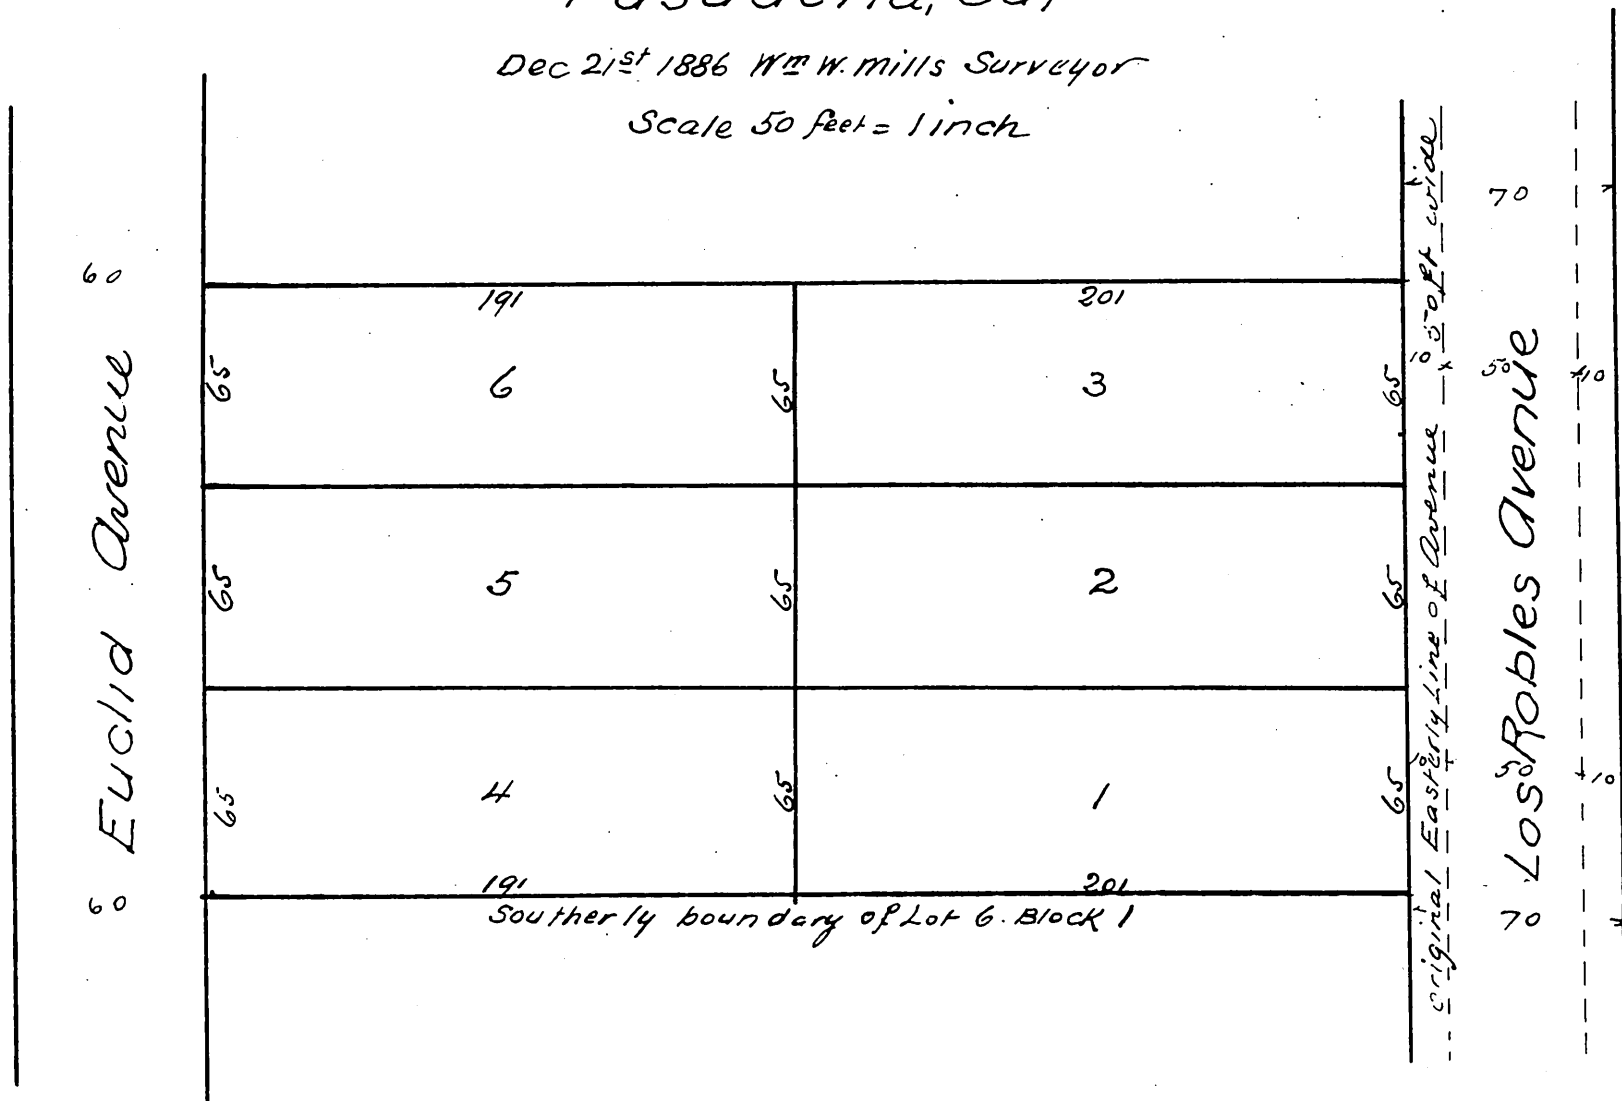 Pasadena, Cal
Dec 21st 1886 Wm W. Mills Surveyor
Scale 50 feet = 1 inch
60
Euclid Avenue
60
191
201
65
6
65
3
65
65
5
65
2
65
65
4
65
1
65
191
201
Southerly boundary of Lot 6. Block 1
Original Easterly Line of Avenue 50 ft wide
10
70
50
10
Los Robles Avenue
50
10
70